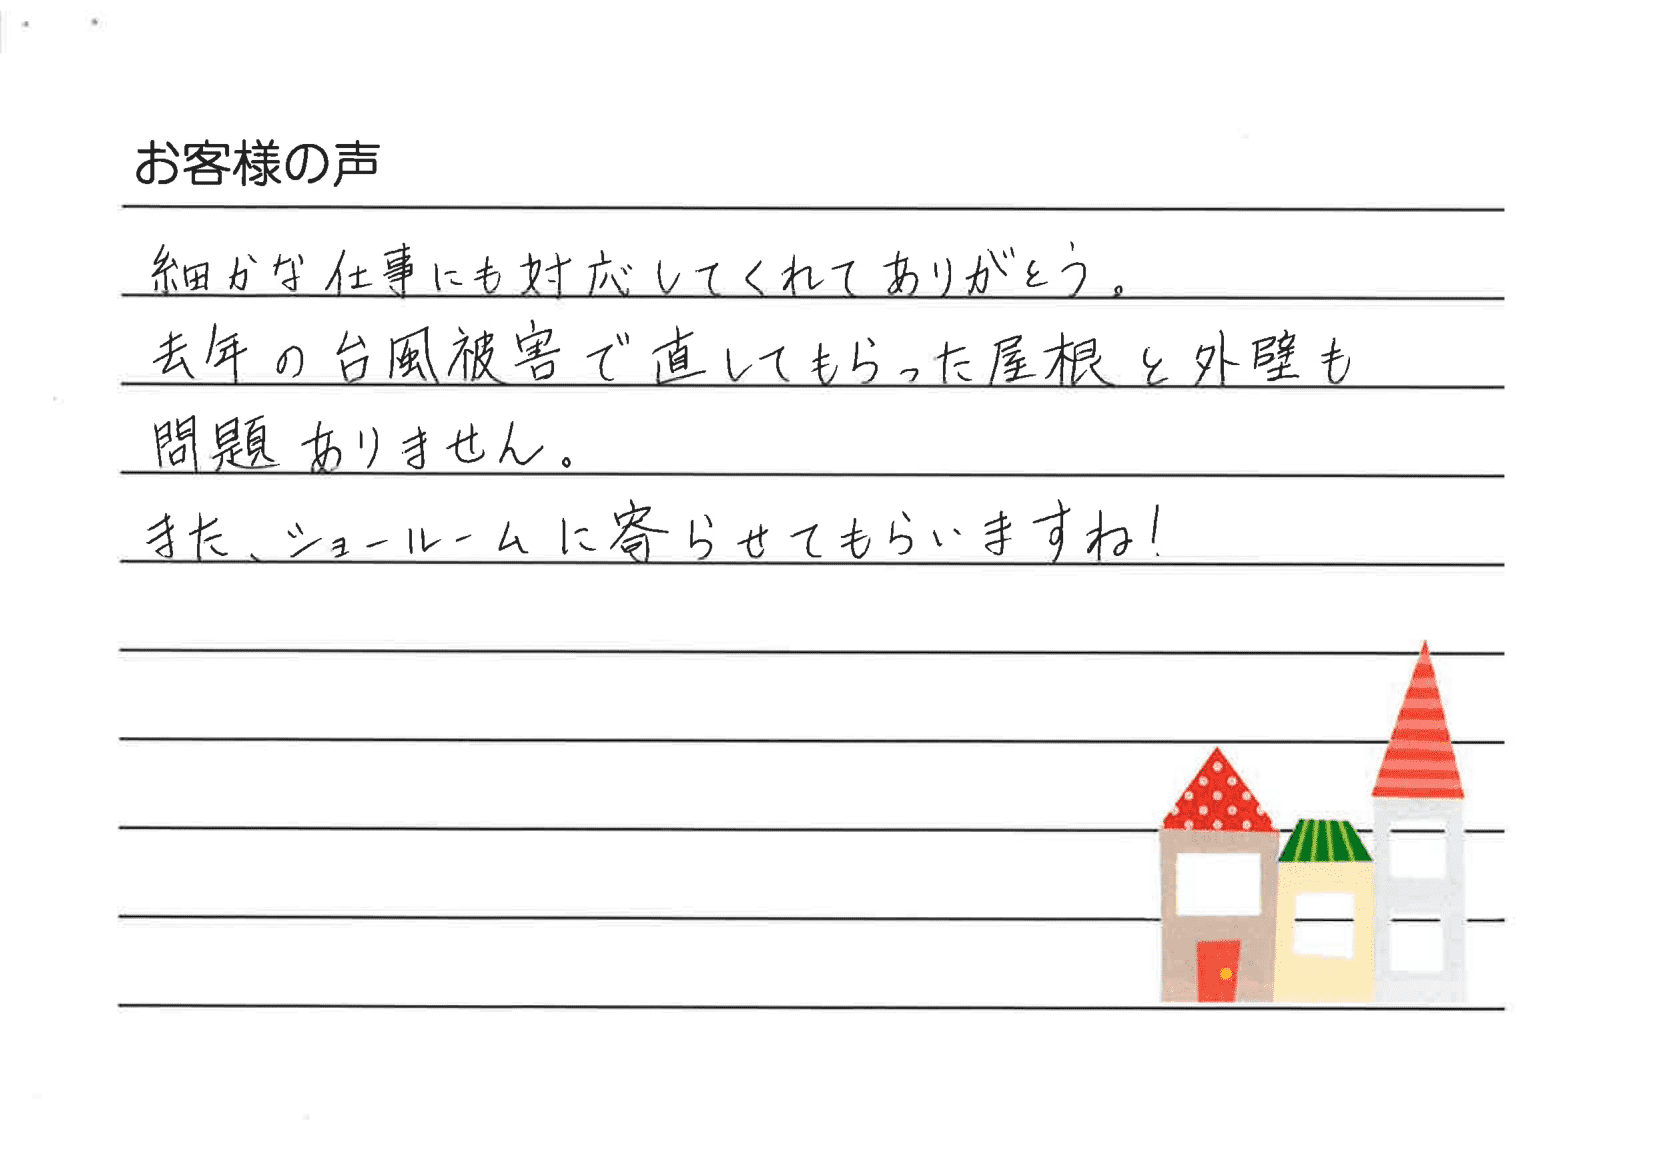 お客様の声
細かな仕事にも対応してくれてありがとう。
去年の台風被害で直してもらった屋根と外壁も
問題ありません。
また、ショールームに寄らせてもらいますね!